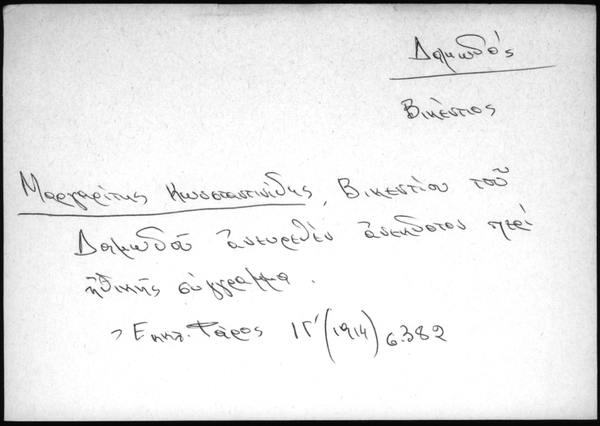 Δαμωδός
Βικέντιος
Μαργαρίτης Κωνσταντινίδης, Βικεντίου τοῦ
Δαμωδοῦ ἀνευρεθὲν ἀνέκδοτον περὶ
ἠθικῆς σύγγραμμα.
> Εκκλ. Φάρος ΙΓ' (1914) σ. 382